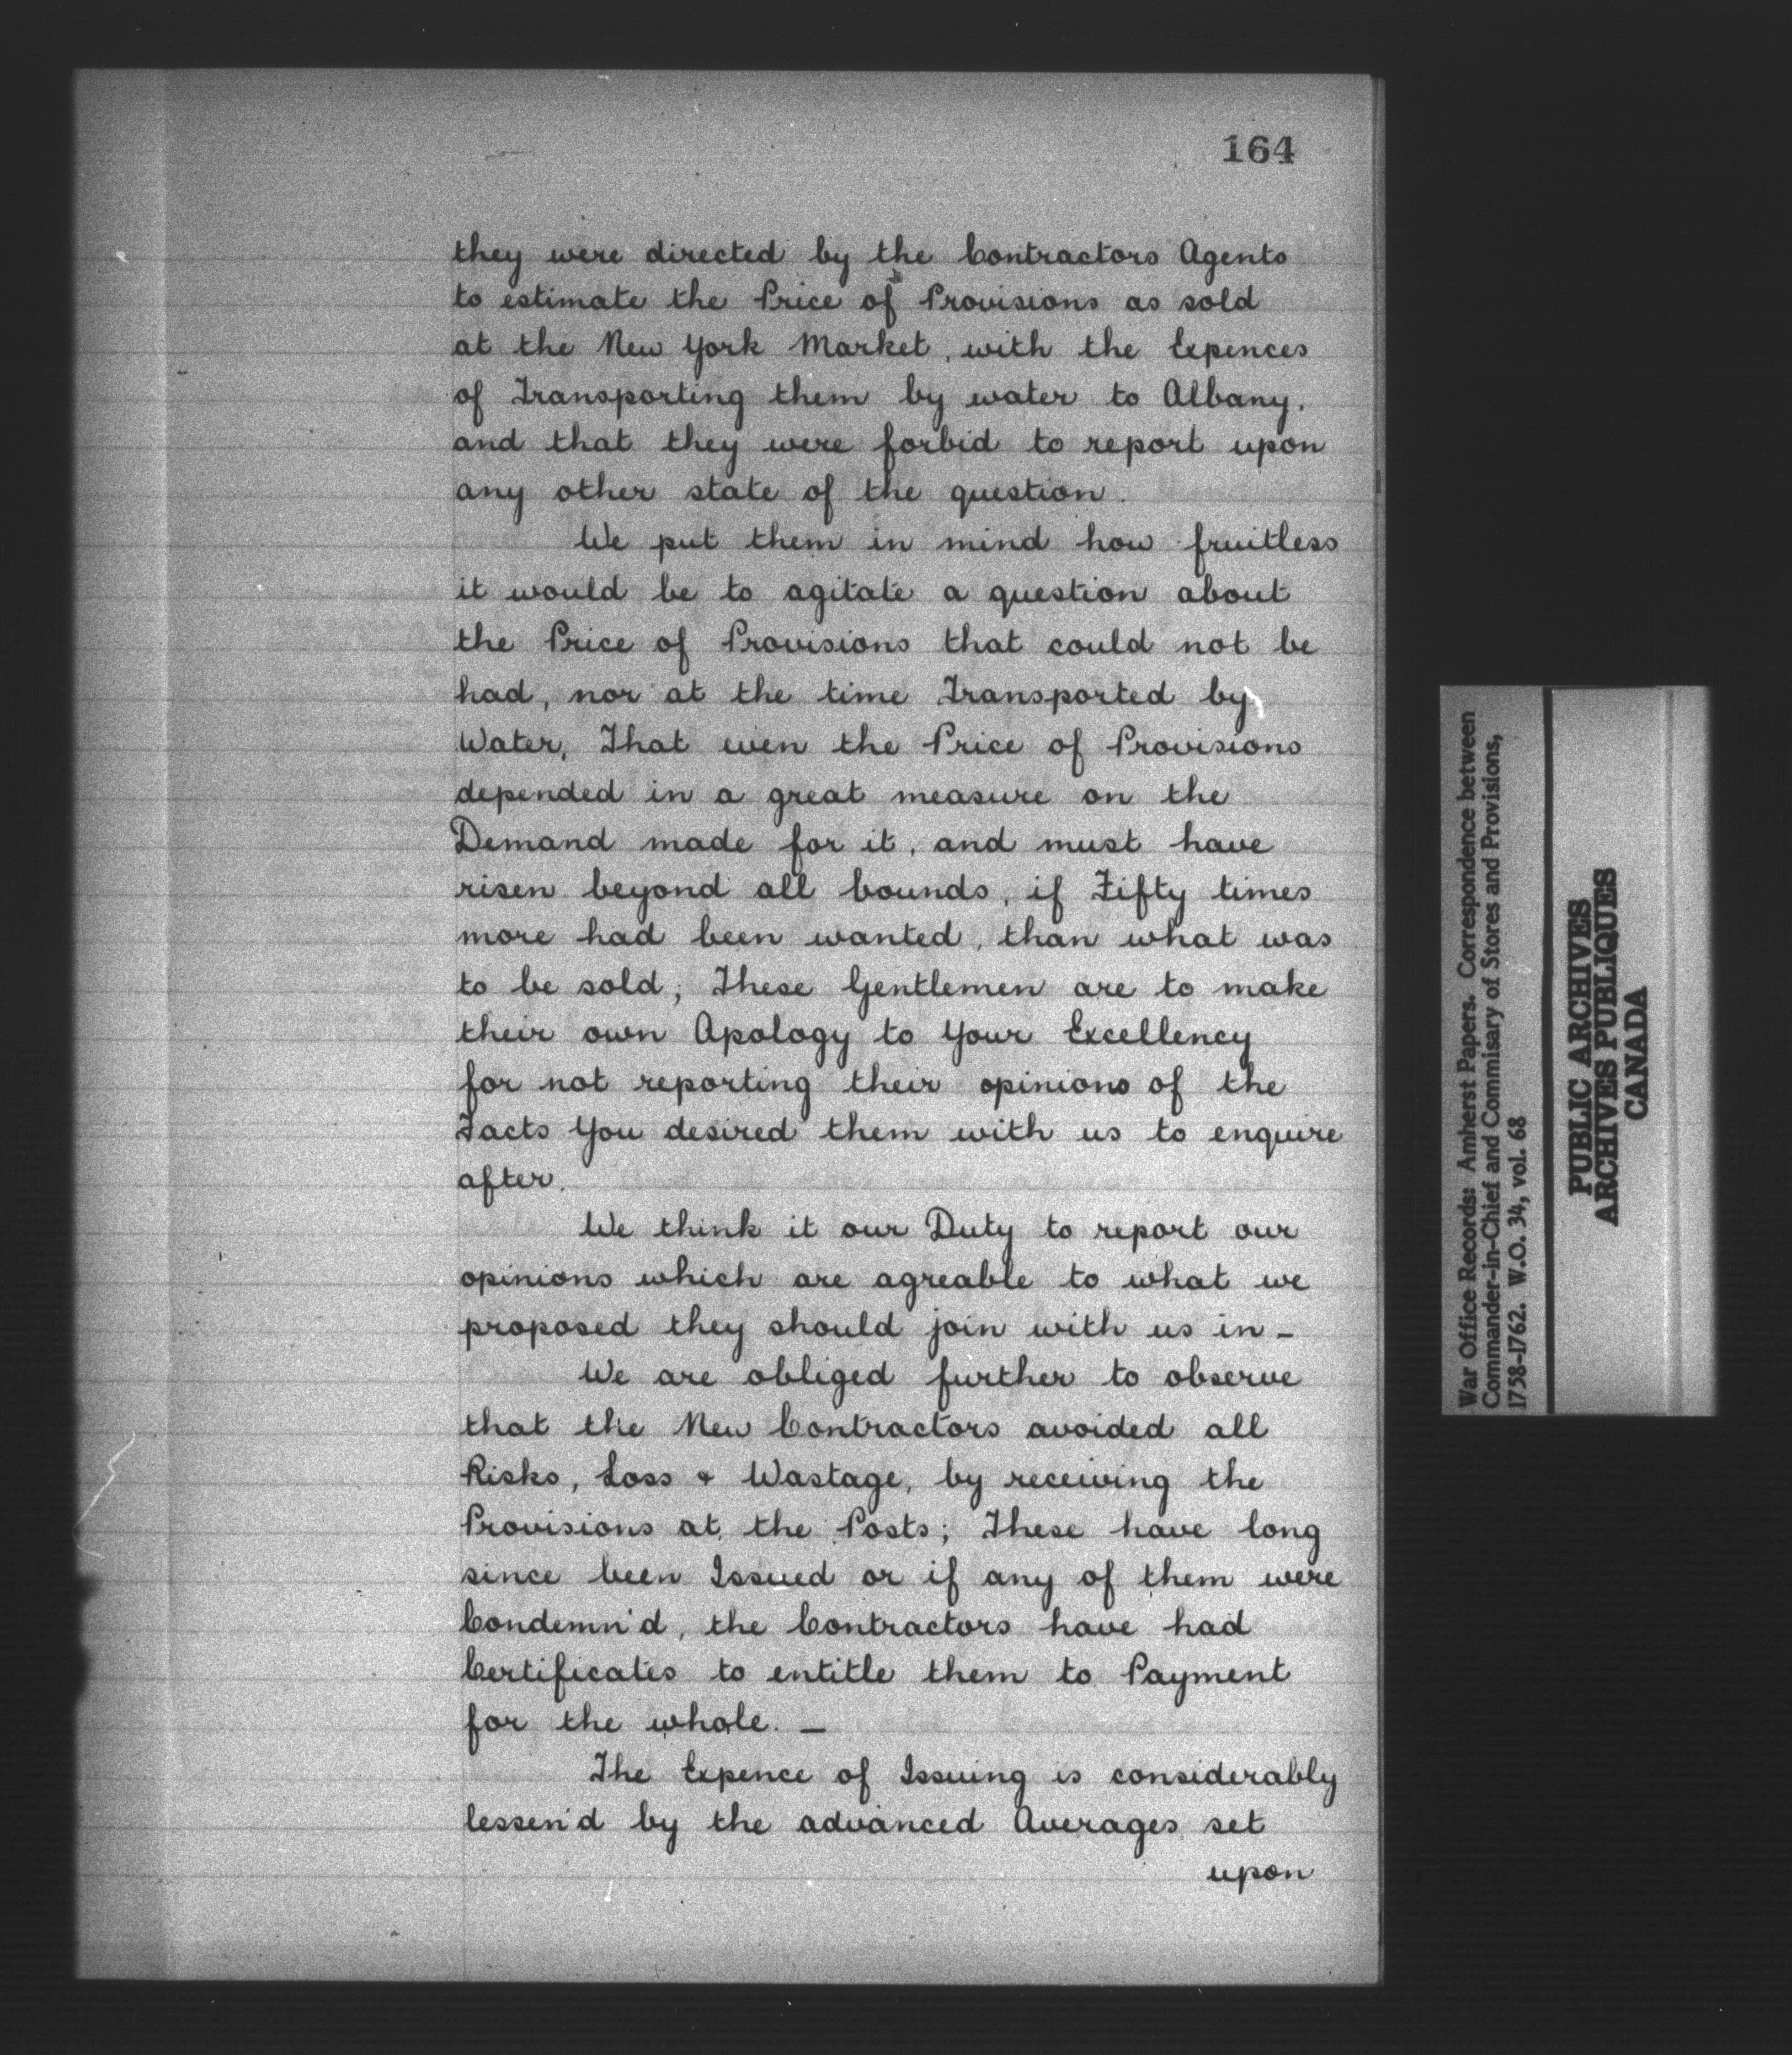 164
they were directed by the Contractors Agents
to estimate the Price of Provisions as sold
at the New York Market, with the Expences
of Transporting them by water to Albany.
and that they were forbid to report upon
any other state of the question.
We put them in mind how fruitless
it would be to agitate a question about
the Price of Provisions that could not be
had, nor at the time Transported by
Water, That even the Price of Provisions
depended in a great measure on the
Demand made for it, and must have
risen beyond all bounds, if Fifty times
more had been wanted, than what was
to be sold; These Gentlemen are to make
their own Apology to Your Excellency
for not reporting their opinions of the
Facts You desired them with us to enquire
after.
We think it our Duty to report our
opinions which are agreable to what we
proposed they should join with us in –
We are obliged further to observe
that the New Contractors avoided all
Risks, Loss & Wastage, by receiving the
Provisions at the Posts; These have long
since been Issued or if any of them were
Condemn'd, the Contractors have had
Certificates to entitle them to Payment
for the whole. –
The Expence of Issuing is considerably
lessen'd by the advanced Averages set
upon
War Office Records: Amherst Papers. Correspondence between
Commander-in-Chief and Commisary of Stores and Provisions,
1758-1762. W.O. 34, vol. 68
PUBLIC ARCHIVES
ARCHIVES PUBLIQUES
CANADA